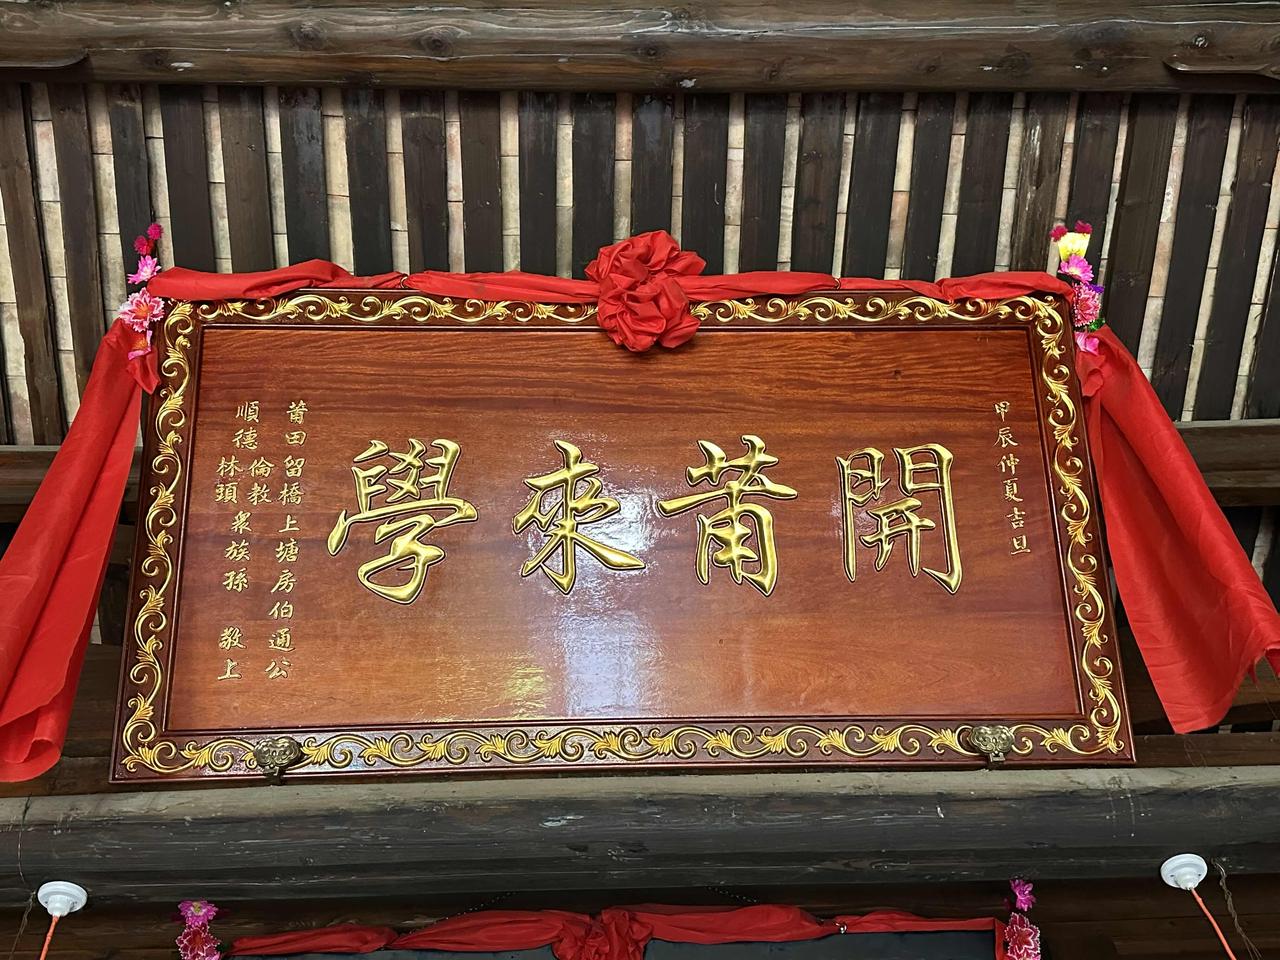 甲辰仲夏吉旦
開莆來學
莆田留橋上塘房伯通公
順德倫教林頭衆族孫 敬上